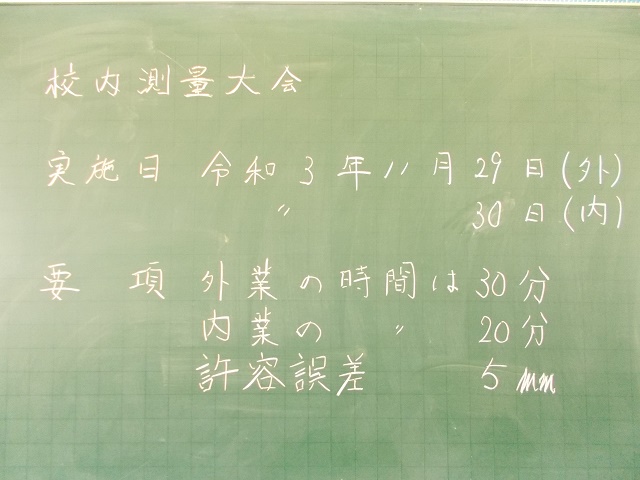 校内測量大会
実施日 令和3年11月29日(外)
〃 30日(内)
要 項 外業の時間は30分
内業の 〃 20分
許容誤差 5mm